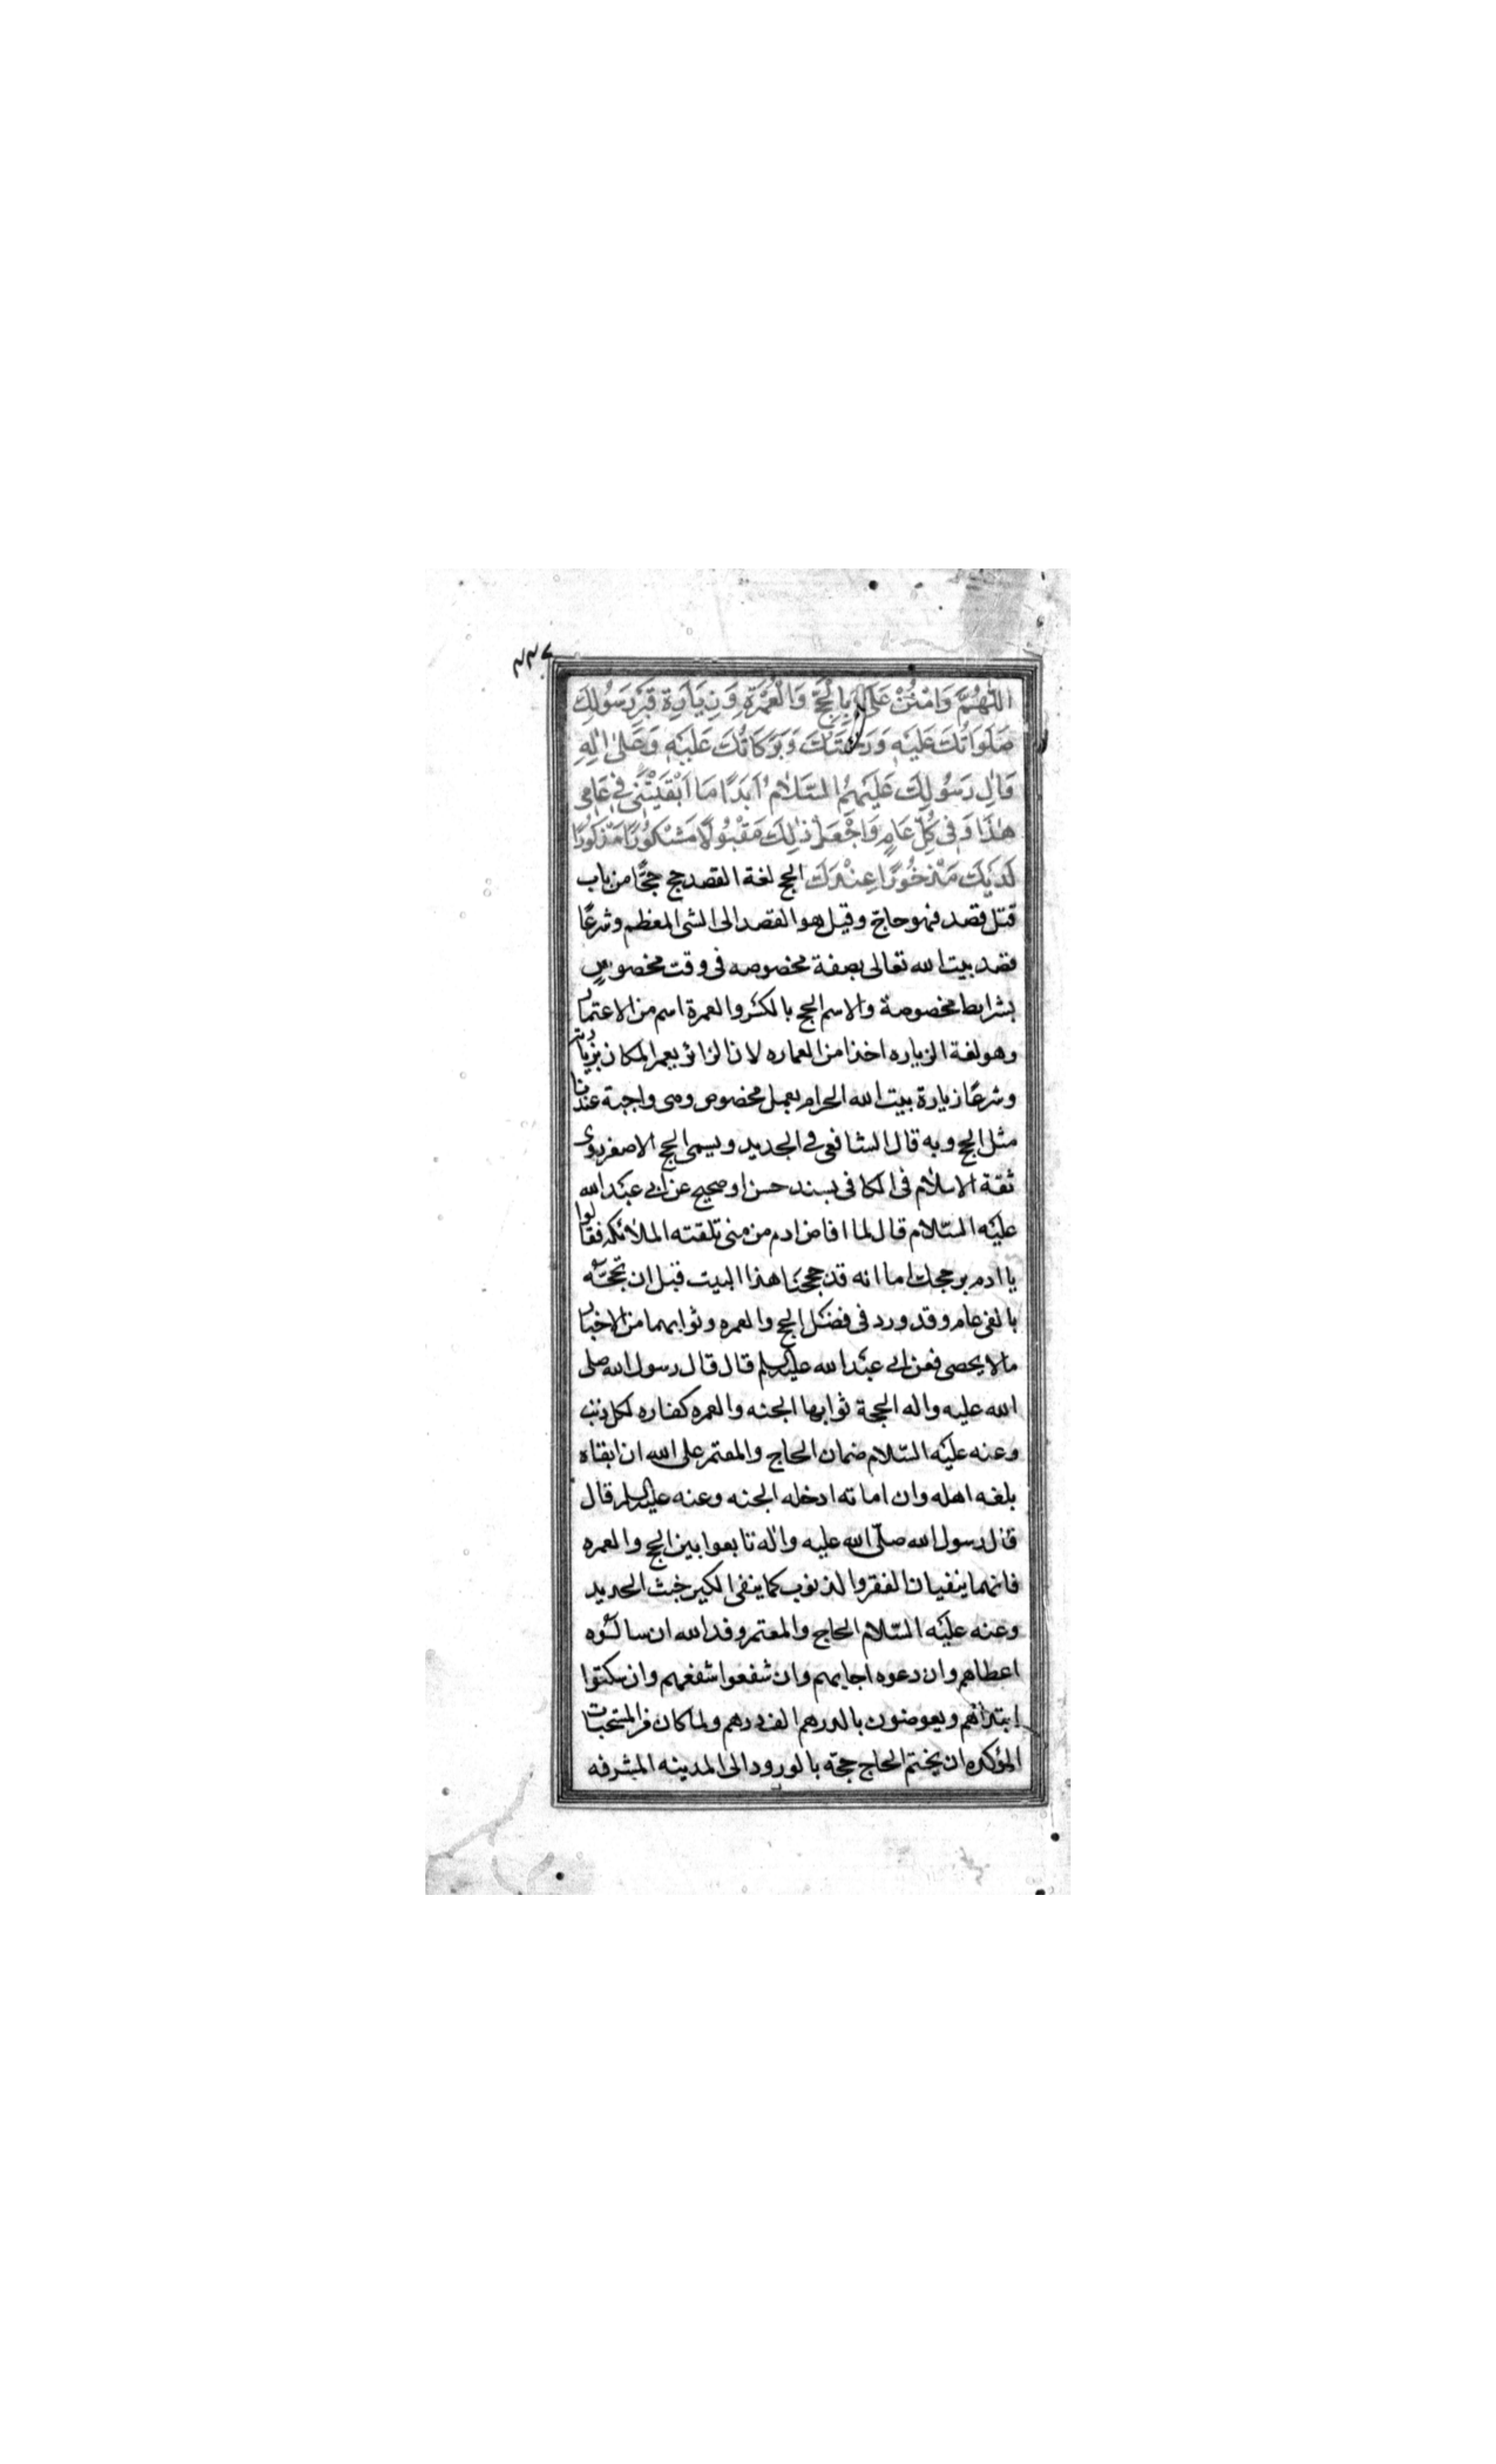 ٢٣٧
اَللّٰهُمَّ وَامْنُنْ عَلَىَّ بِالْحَجِّ وَالْعُمْرَةِ وَزِيَارَةِ قَبْرِ رَسُولِكَ
صَلَوَاتُكَ عَلَيْهِ وَرَحْمَتُكَ وَبَرَكَاتُكَ عَلَيْهِ وَعَلىٰ اٰلِهِ
وَاٰلِ رَسُولِكَ عَلَيْهِمُ السَّلاٰمُ اَبَدًا مَا اَبْقَيْتَنِى فِى عَامِى
هٰذَا وَفِى كُلِّ عَامٍ وَاجْعَلْ ذٰلِكَ مَقْبُولًا مَشْكُورًا مَذْكُورًا
لَدَيْكَ مَذْخُورًا عِنْدَكَ الحج لغة القصد حج حجًّا من باب
قتل قصد فهو حاجّ وقيل هو القصد الى الشى المعظم وشرعًا
قصد بيت الله تعالى بصفة مخصوصه فى وقت مخصوصٍ
بشرايط مخصوصة والاسم الحج بالكسر والعمرة اسم من الاعتمار
وهو لغة الزياره اخذا من العماره لان الزائر يعمر المكان بزيارته
وشرعًا زيارة بيت الله الحرام بعمل مخصوص وهى واجبة عندنا
مثل الحج وبه قال الشافعى فى الجديد ويسمى الحج الاصغر روى
ثقة الاسلام فى الكافى بسند حسن او صحيح عن ابى عبد الله
عليه السّلام قال لما افاض ادم من منى تلقته الملائكه فقالوا
يا ادم بر حجك اما انه قد حججنا هذا البيت قبل ان تحجّه
بالفى عام وقد ورد فى فضل الحج والعمره وثوابهما من الاخبار
ما لا يحصى فعن ابى عبد الله عليه السلم قال قال رسول الله صلى
الله عليه واله الحجة ثوابها الجنه والعمره كفاره لكل ذنب
وعنه عليه السّلام ضمان الحاج والمعتمر على الله ان ابقاه
بلغه اهله وان اماته ادخله الجنه وعنه عليه السلم قال
قال رسول الله صلّى الله عليه واله تابعوا بين الحج والعمره
فانهما ينفيان الفقر والذنوب كما ينفى الكير خبث الحديد
وعنه عليه السّلام الحاج والمعتمر وفد الله ان سالوه
اعطاهم وان دعوه اجابهم وان شفعوا شفعهم وان سكتوا
ابتداهم ويعوضون بالدرهم الف درهم ولما كان من المستحبات
المؤكده ان يختم الحاج حجة بالورود الى المدينه المشرفه